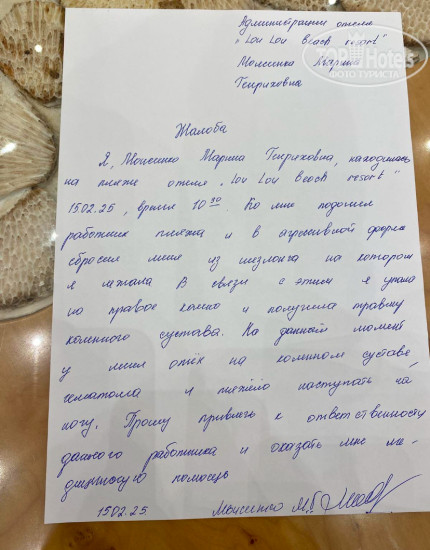 Администрации отеля
"Lou Lou Beach resort"
Моисенко Марина
Генриховна
TOPHotels
ФОТО ТУРИСТА
Жалоба
Я, Моисенко Марина Генриховна, находилась
на пляже отеля "Lou Lou Beach resort"
15.02.25, время 10 30 Ко мне подошел
работник пляжа и в агрессивной форме
сбросил меня из шезлонга на котором
я лежала В связи с этим я упала
на правое колено и получила травму
коленного сустава. На данный момент
у меня отёк на коленном суставе
гематома и тяжело наступать на
ногу. Прошу привлечь к ответственности
данного работника и оказать мне ме-
дицинскую помощь
15.02.25. Моисенко М.Г.